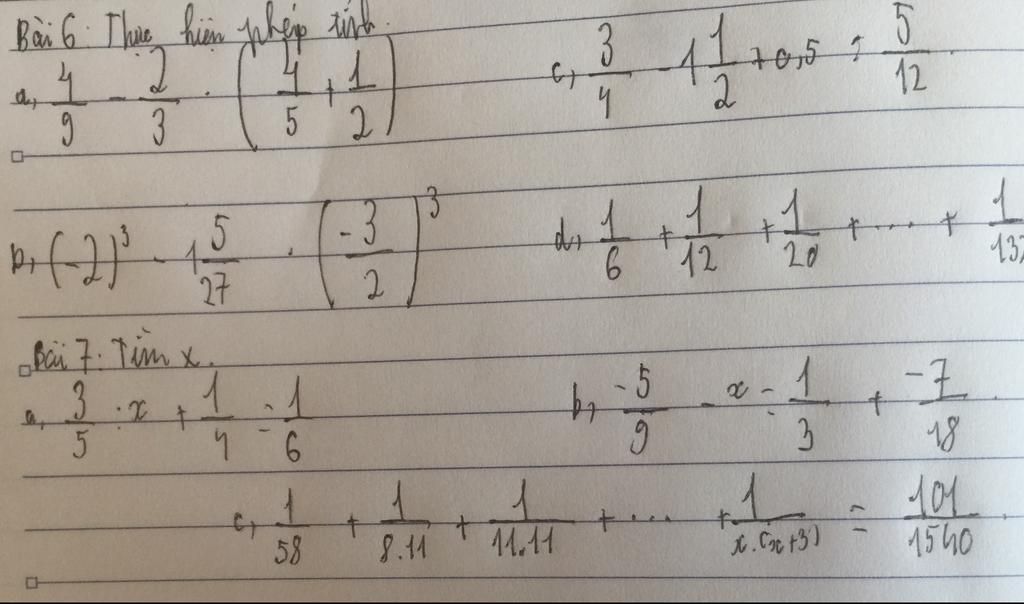 Bài 6: Thực hiện phép tính.
a, 4/9 - 2/3 . (4/5 + 1/2)
c, 3/4 - 1 1/2 + 0,5 : 5/12
b, (-2)³ - 1 5/27 . (-3/2)³
d, 1/6 + 1/12 + 1/20 + .... + 1/132
Bài 7: Tìm x.
a, 3/5 : x + 1/4 = 1/6
b, -5/9 - x = 1/3 + -7/18
c, 1/58 + 1/8.11 + 1/11.11 + .... + 1/x.(x+3) = 101/1540